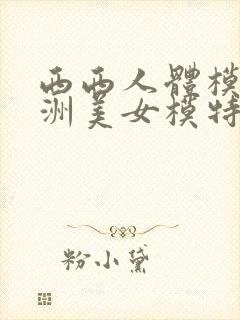 西西人體模
洲美女模特
粉小黛